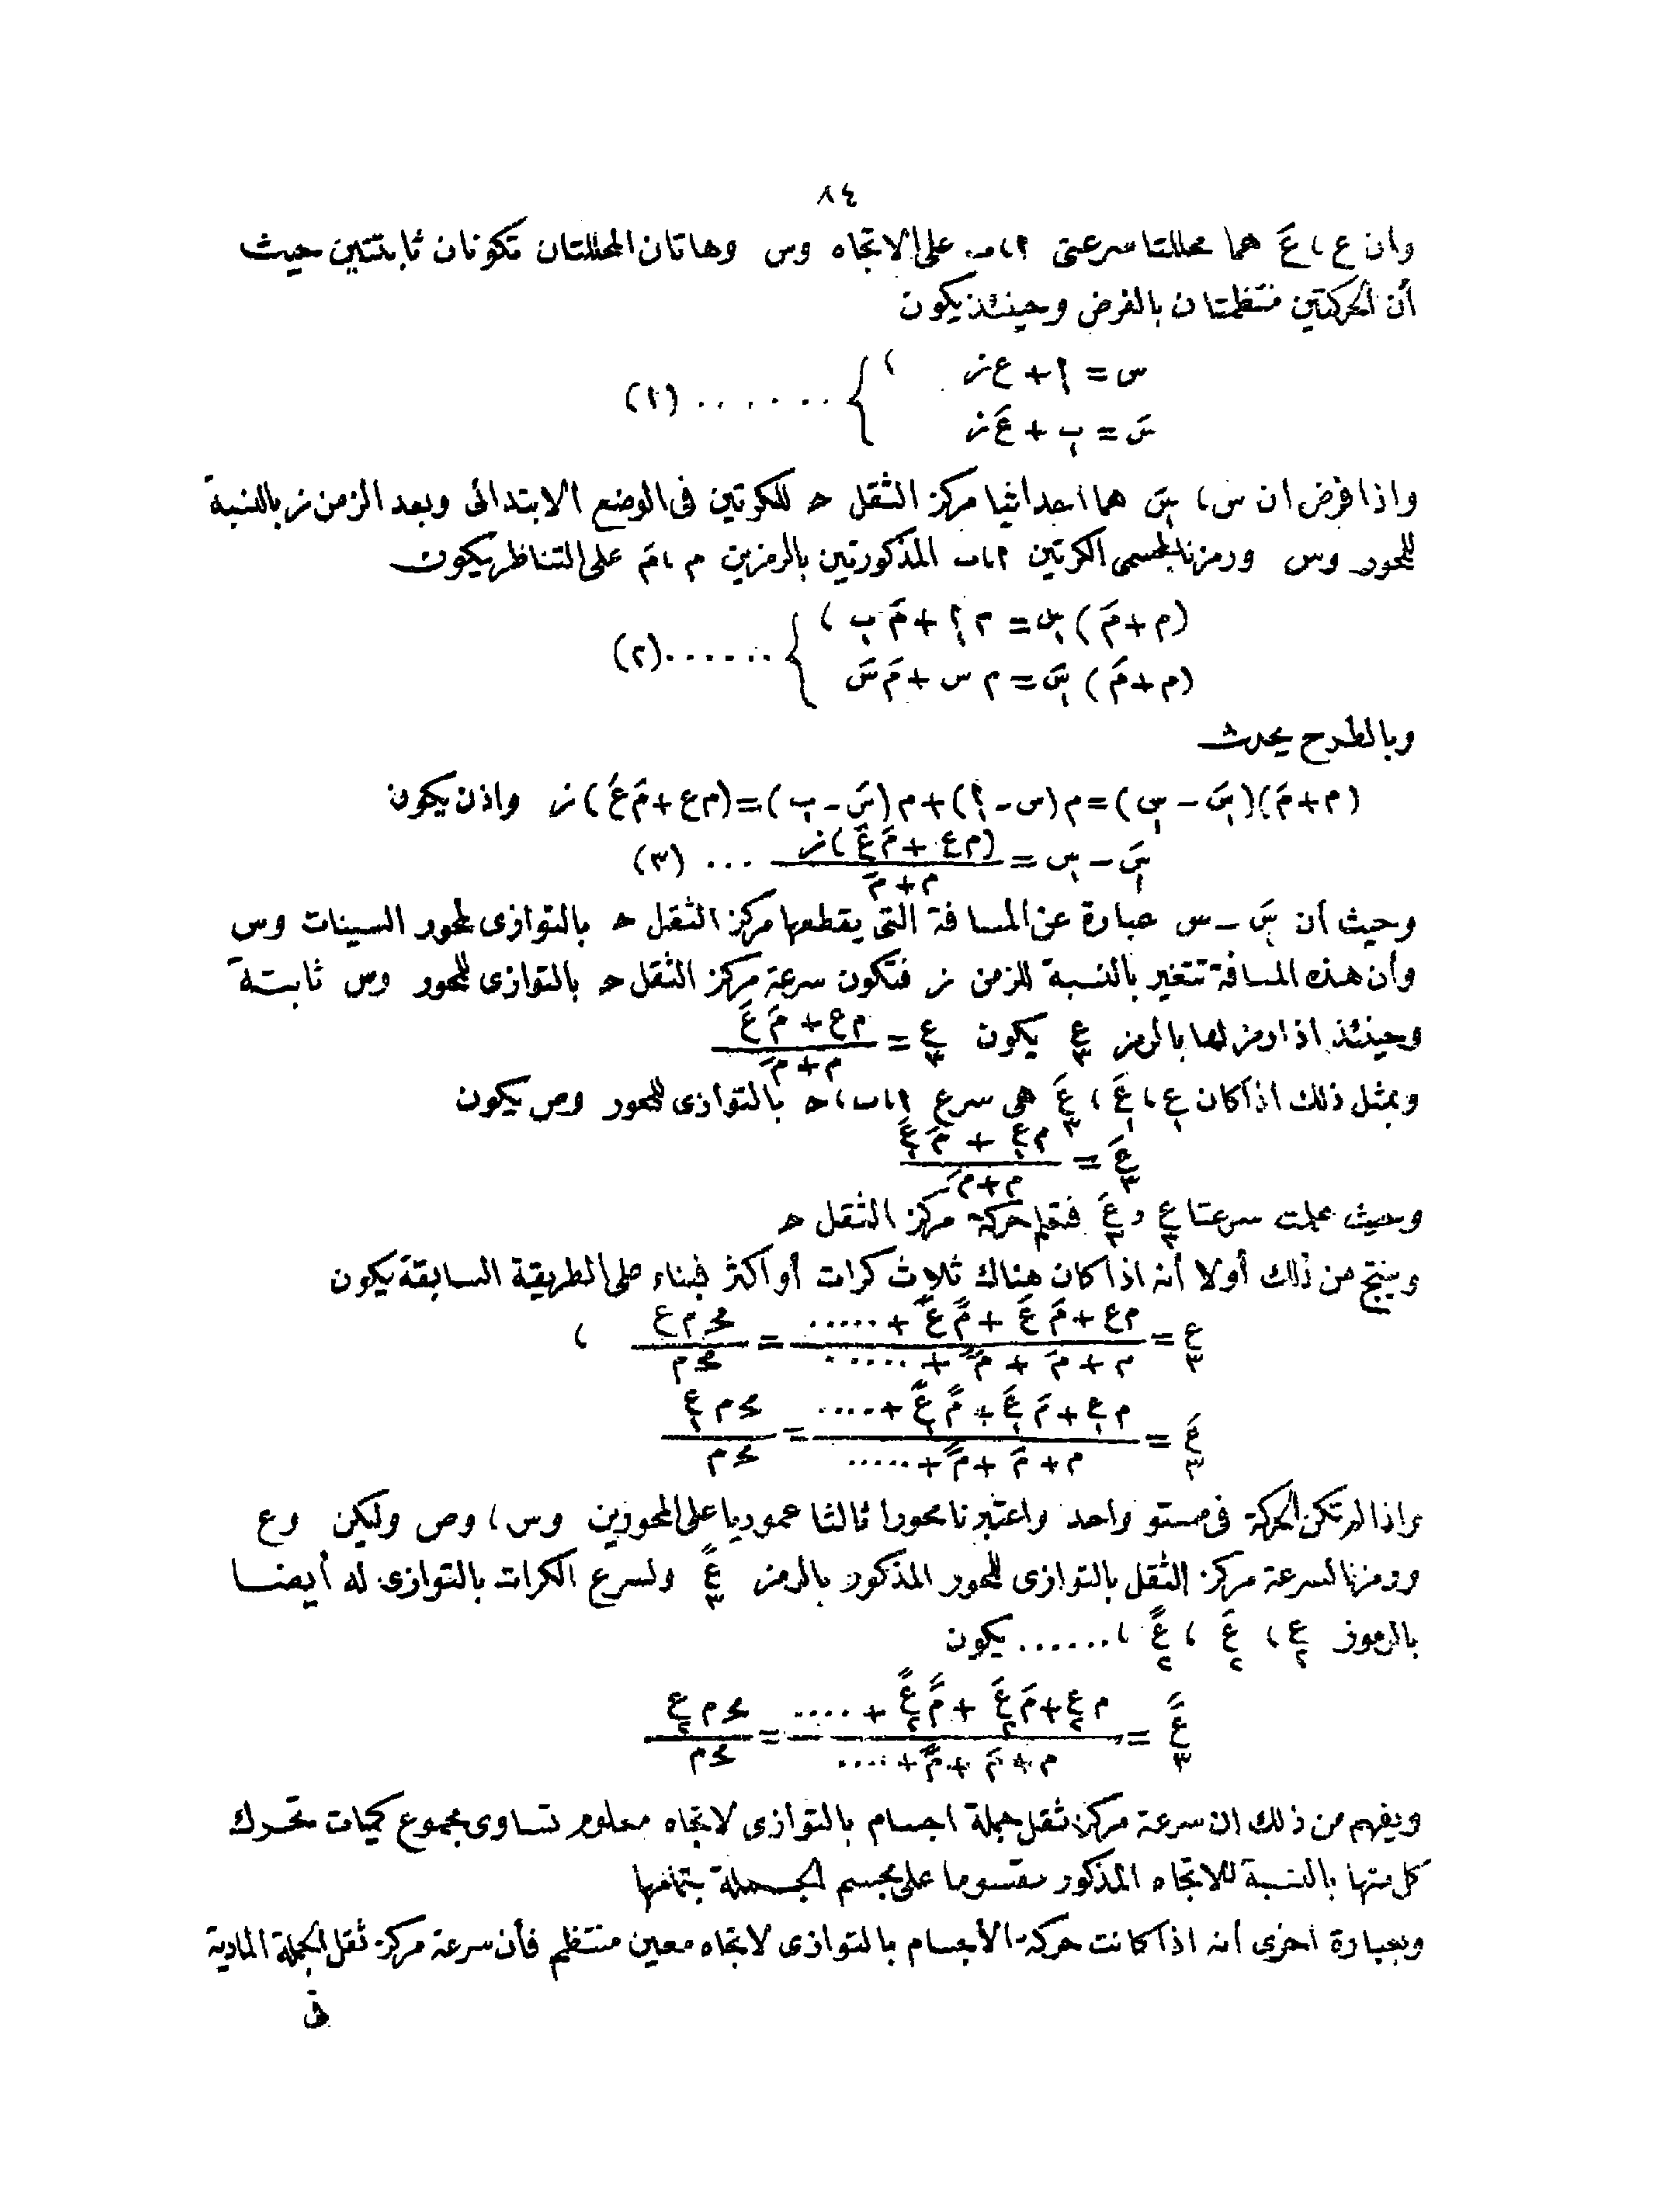 ٨٤
وان ع ، عَ هما محللتا سرعتى ا ، ب على الاتجاه وس وهاتان المحللتان تكونان ثابتتين حيث
أن الحركتين منتظمتان بالفرض وحينئذ يكون
س = ا + ع ز ،
سَ = ب + عَ ز } ...... (١)
واذا فرض ان س ، سَ هما احداثيا مركز الثقل ح للكرتين فى الوضع الابتدائى وبعد الزمن ز بالنسبة
للمحور وس ورمزنا لمجسمى الكرتين ا ، ب المذكورتين بالرمزين م ، مَ على التناظر يكون
(م + مَ) س = م ا + مَ ب ،
(م + مَ) سَ = م س + مَ سَ } ...... (٢)
وبالطرح يحدث
(م + مَ)(سَ - س) = م (س - ا) + م (سَ - ب) = (م ع + مَ عَ) ز واذن يكون
سَ - س = (م ع + مَ عَ) ز / م + مَ ... (٣)
وحيث أن سَ - س عبارة عن المسافة التى يقطعها مركز الثقل ح بالتوازى لمحور السينات وس
وأن هذه المسافة تتغير بالنسبة للزمن ز فتكون سرعة مركز الثقل ح بالتوازى للمحور وس ثابتة
وحينئذ اذا رمز لها بالرمز ع٣ يكون ع٣ = م ع + مَ عَ / م + مَ
وبمثل ذلك اذا كان ع١ ، عَ١ ، عَ٣ هى سرع ا ، ب ، ح بالتوازى للمحور وص يكون
عَ٣ = م ع١ + مَ عَ١ / م + مَ
وحيث علمت سرعتا ع٣ و عَ٣ فتعلم حركة مركز الثقل ح
وينتج من ذلك أولا أنه اذا كان هناك ثلاث كرات أو أكثر فبناء على الطريقة السابقة يكون
ع٣ = م ع + مَ عَ + مً عً + ..... / م + مَ + مً + ..... = مح م ع / مح م ،
عَ٣ = م ع١ + مَ عَ١ + مً عً١ + ..... / م + مَ + مً + ..... = مح م ع١ / مح م
واذا لم تكن الحركة فى مستو واحد واعتبرنا محورا ثالثا عموديا على المحورين وس ، وص وليكن وع
ورمزنا لسرعة مركز الثقل بالتوازى للمحور المذكور بالرمز عً٣ ولسرع الكرات بالتوازى له أيضا
بالرموز ع٢ ، عَ٢ ، عً٢ ، ...... يكون
عً٣ = م ع٢ + مَ عَ٢ + مً عً٢ + .... / م + مَ + مً + .... = مح م ع٢ / مح م
ويفهم من ذلك ان سرعة مركز ثقل جملة اجسام بالتوازى لاتجاه معلوم تساوى مجموع كميات تحرك
كل منها بالنسبة للاتجاه المذكور مقسوما على مجسم الجملة بتمامها
وبعبارة اخرى أنه اذا كانت حركة الأجسام بالتوازى لاتجاه معين منتظم فأن سرعة مركز ثقل الجملة المادية
فى